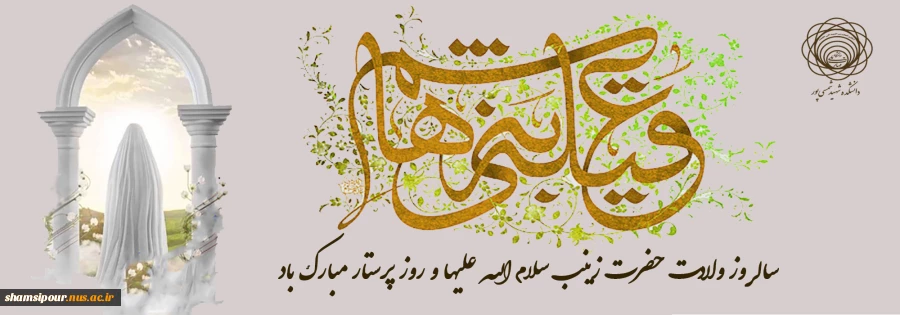 عقیله بنی هاشم
دانشکده شهید شمسی پور
سالروز ولادت حضرت زینب سلام الله علیها و روز پرستار مبارک باد
shamsipour.nus.ac.ir